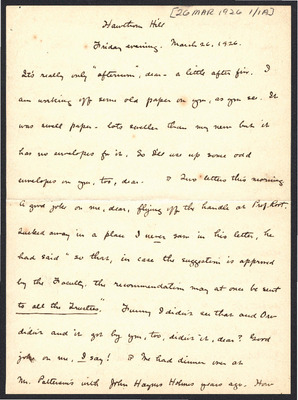 [26 MAR 1926 1/1A]
Hawthorn Hill
Friday evening. March 26, 1926.
It's really only "afternoon", dear - a little after five. I
am working off some old paper on you, as you see. It
was swell paper - lots sweller than my new but it
has no envelopes for it. So I'll use up some odd
envelopes on you, too, dear. Two letters this morning
A good joke on me, dear, flying off the handle at Prof.
Tucked away in a place I never saw in his letter, he
had said "so that, in case the suggestion is approved
by the Faculty, the recommendation may at once be sent
to all the Trustees". Funny I didn't see that and Orv
didn't and it got by you, too, didn't it, dear? Good
joke on me, I say! We had dinner over at
Mr. Patterson's with John Haynes Holmes years ago. How